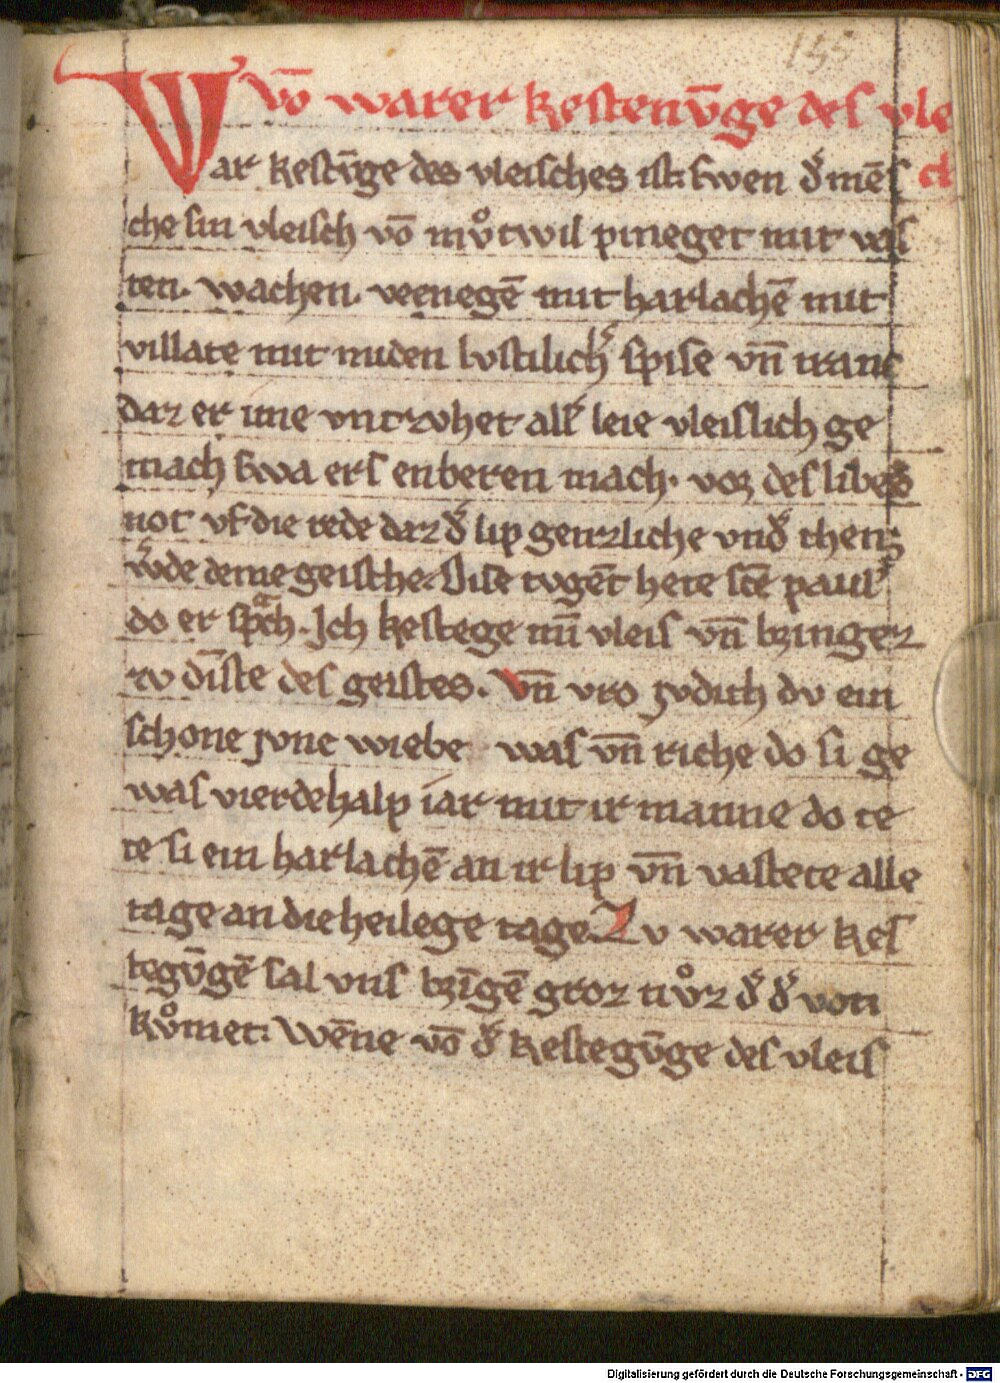 155
Vō warer kestenūge des vle
War kestūge des vleisches ist. swen d̛ mēs ch
che sin vleisch vō mv̊twil pineget mit vas
ten. wachen. venegē mit harlachē mit
villate mit miden lvstilich̛ spise vn̄ tranc
daz er ime vntzvhet all̛ leie vleislich ge
mach swa ers enberen mach. voz des libes
not vf die rede daz d̛ lip gentzliche vnd̛ then
w̛de deme geisthe. Dise tvgēt hete sc̄e paul̛
do er spͣch. Ich kestege mī vleis vn̄ bzingez
zv dīste des geistes. Vn̄ vro Jvdith dv ein
schone Jvnc wiebe was vn̄ riche do si ge
was vierdehalp iar mit ir manne do te
te si ein harlachē an ir lip vn̄ vastete alle
tage an die heilege tage. Zv warer kes
tegv̄gē sal vns bzīgē groz nv̊z d̛ d̛ von
kv̊met. Wēne vō d̛ kestegv̄ge des vleis
Digitalisierung gefördert durch die Deutsche Forschungsgemeinschaft - DFG